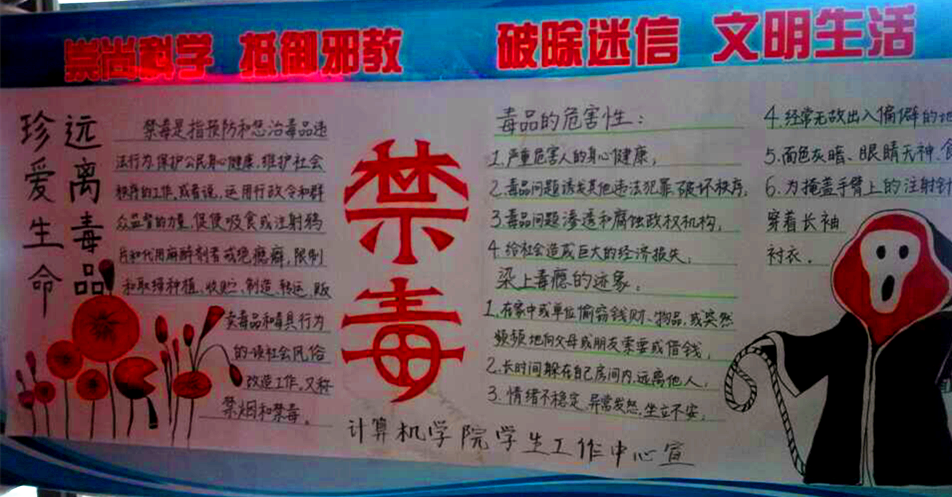 崇尚科学 抵御邪教 破除迷信 文明生活
珍爱生命
远离毒品
禁毒是指预防和惩治毒品违
法行为,保护公民身心健康,维护社会
秩序的工作。或者说,运用行政令和群
众监督的力量,促使吸食或注射鸦
片和代用麻醉剂者戒绝瘾癖,限制
和取缔种植、收贮、制造、转运、贩
卖毒品和毒具行为
的一项社会风俗
改造工作。又称
禁烟和禁毒。
禁毒
毒品的危害性:
1.严重危害人的身心健康,
2.毒品问题诱发其他违法犯罪破坏秩序,
3.毒品问题渗透和腐蚀政权机构,
4.给社会造成巨大的经济损失,
染上毒瘾的迹象:
1.在家中或单位偷窃钱财、物品,或突然
频频地向父母或朋友索要或借钱,
2.长时间躲在自己房间内,远离他人,
3.情绪不稳定,异常发怒,坐立不安,
4.经常无故出入偏僻的地
5.面色灰暗、眼睛无神、食
6.为掩盖手臂上的注射针
穿着长袖
衬衣.
计算机学院学生工作中心宣